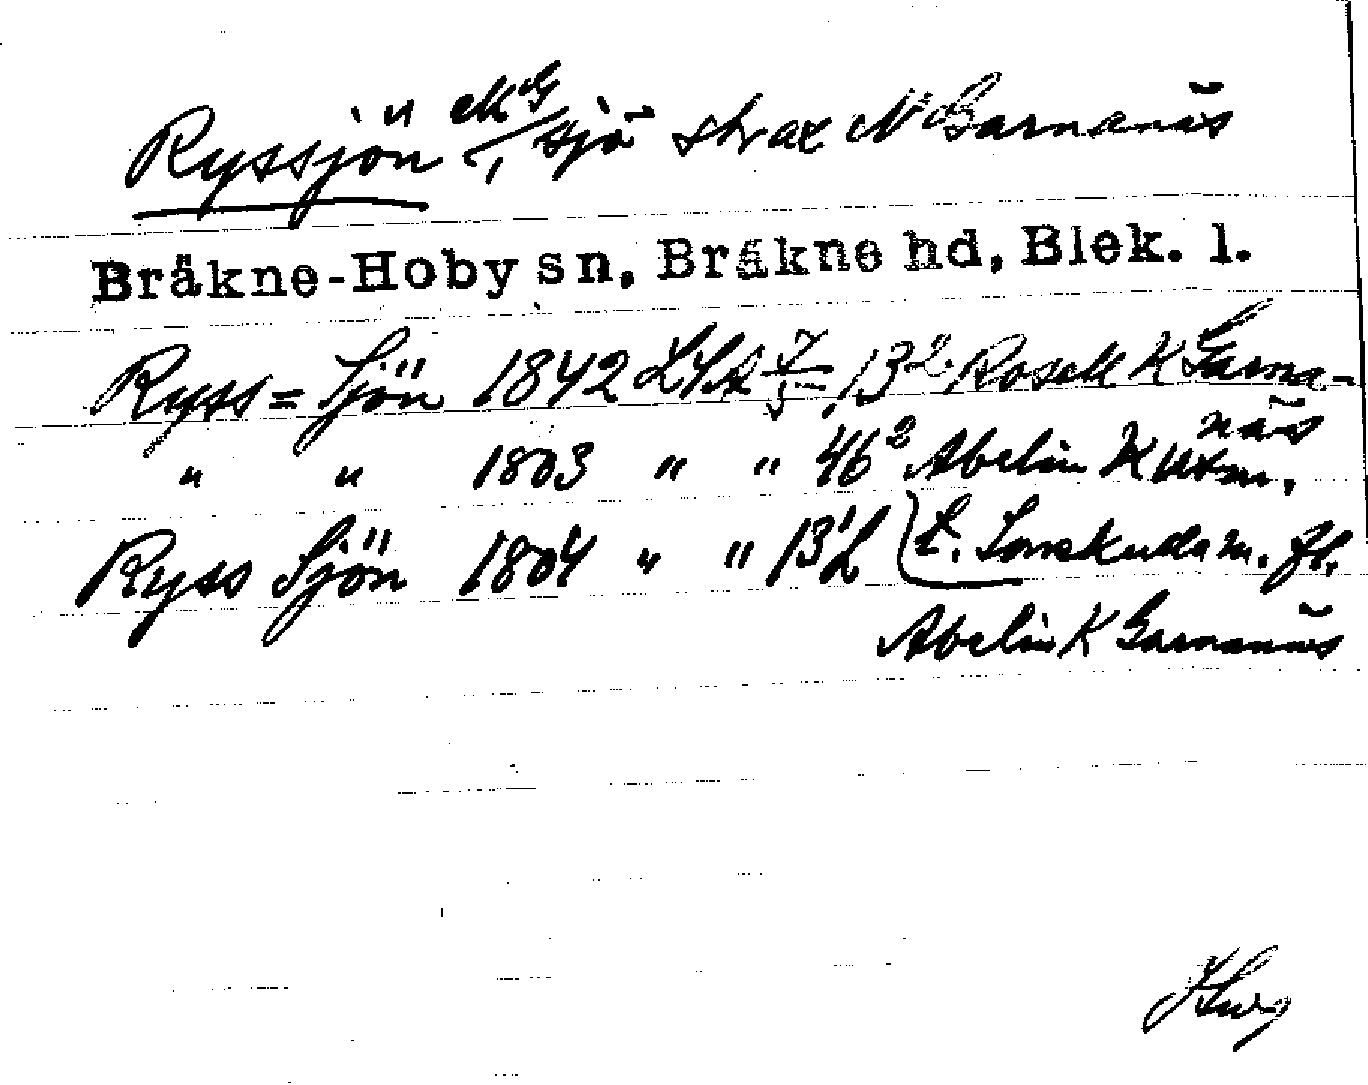 Ryssjön sjö strax N Garnanäs
Bräkne-Hoby sn, Bräkne hd, Blek. l.
Ryss= Sjön 1842 LSA 7/5 13² Rosell K Garna-
näs
" " 1803 " " 46² Abelin K utm.
Ryss Sjön 1804 " " 13¹L fl.
Abelin K Garnanäs